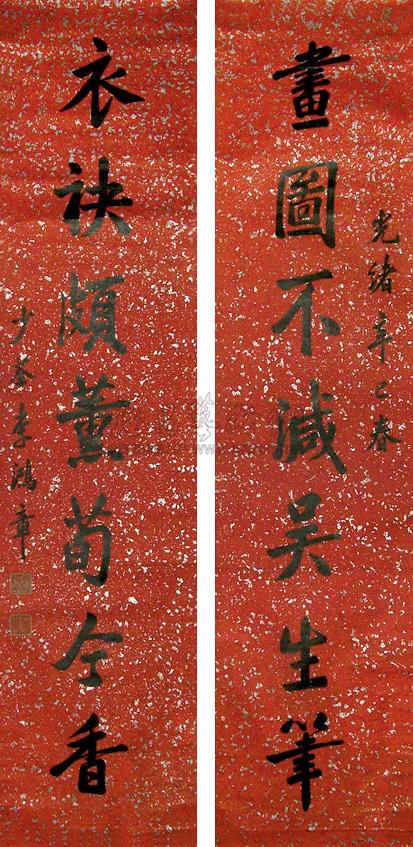 光緒辛巳春
畫圖不減吳生筆
衣袂頗薰荀令香
少荃李鴻章